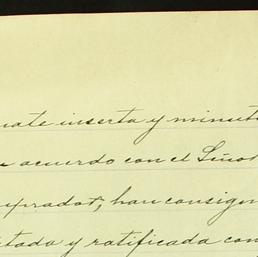 inserta y minut
acuerdo con el Señor
mprador, han consign
tada y ratificada con